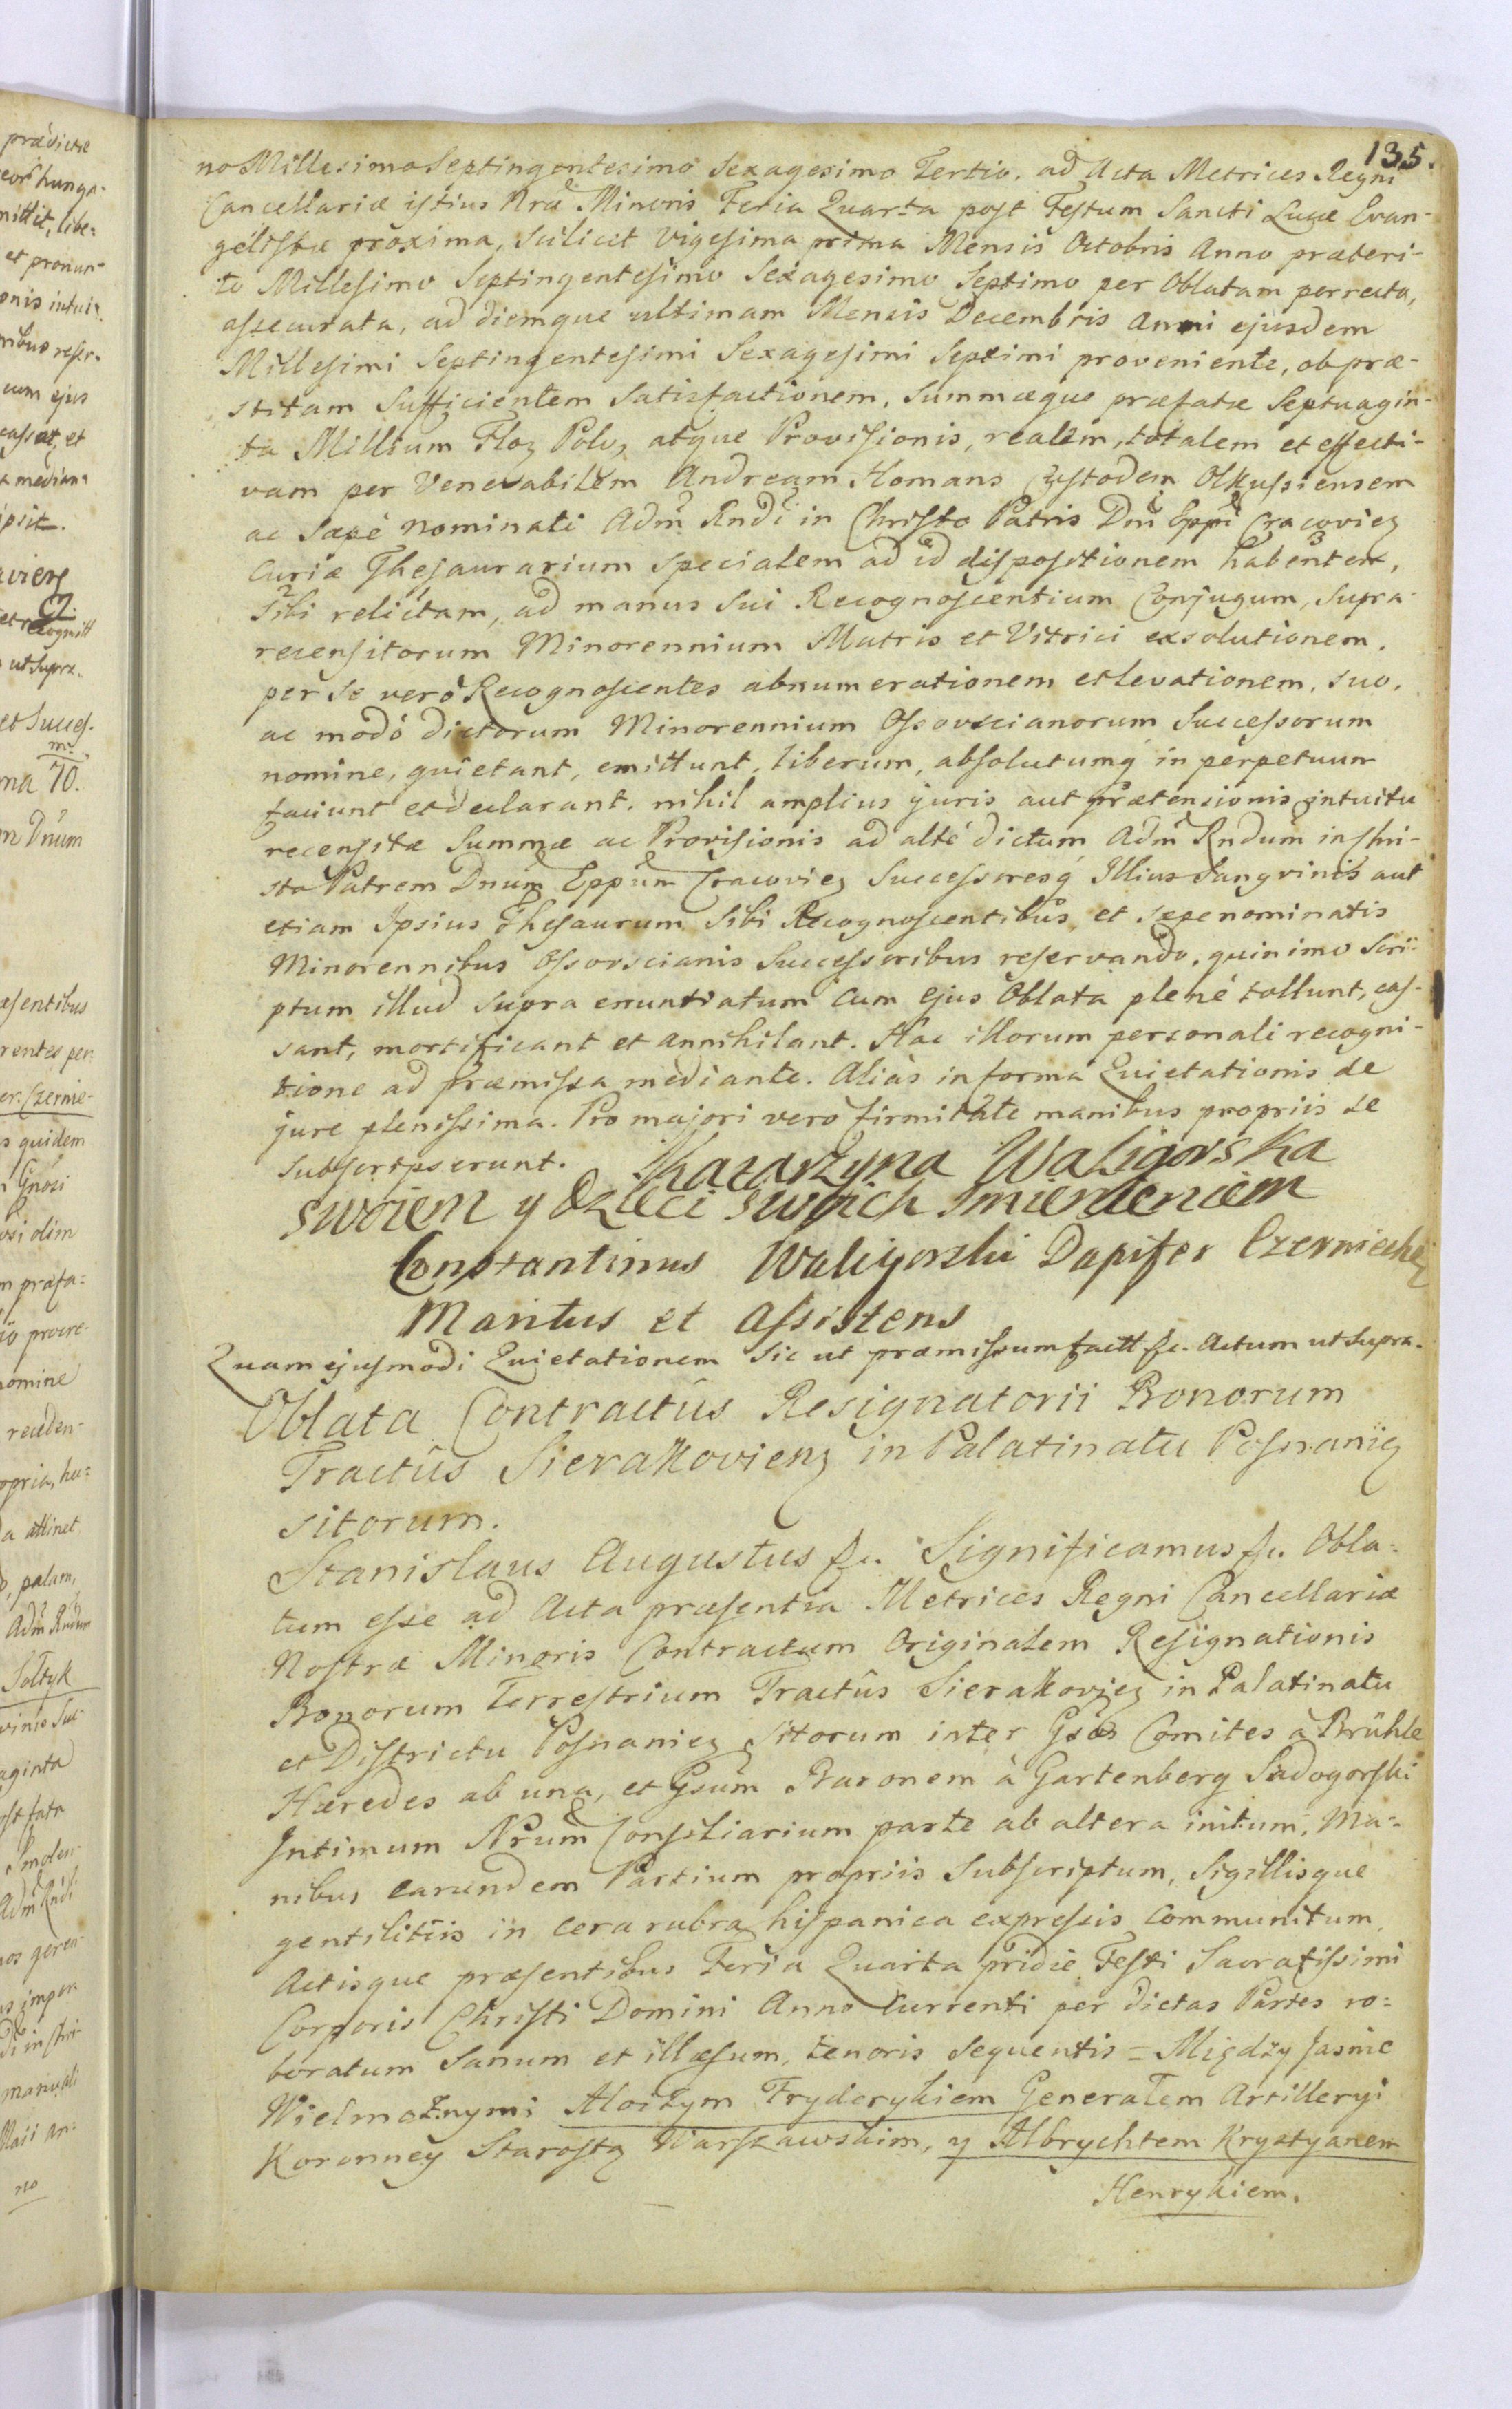 135.
no Millesimo Septingentesimo Sexagesimo Tertio. ad Acta Metrices Regni
Cancellariæ istius Nræ Minoris Feria Quarta post Festum Sancti Lucæ Evan-
gelistæ proxima, scilicet Vigesima prima Mensis Octobris Anno præteri-
to Millesimo Septingentesimo Sexagesimo Septimo per Oblatam porrecta,
assecurata, ad diemque ultimam Mensis Decembris Anni ejusdem
Millesimi Septingentesimi Sexagesimi Septimi proveniente, ob præ-
stitam Sufficientem Satisfactionem, Summæque præfatæ Septuagin-
ta Millium Floz Polo, atque Provisionis, realem, totalem et effecti-
vam per Venerabilem Andream Homans Custodem Olkussiensem
ac sæpè nominati Adm̃ Rndi in Christo Patris Dni Eppi Cracovieꝫ
Curiæ Thesaurarium specialem ad id dispositionem habentem,
Sibi relictam, ad manus sui Recognoscentium Conjugum, supra-
recensitorum Minorennium Matris et Vitrici exsolutionem.
per se verò Recognoscentes abnumerationem et levationem, suo,
ac modò dictorum Minorennium Ossovscianorum Successorum
nomine, quietant, emittunt, liberum, absolutumq́ in perpetuum
faciunt et declarant. nihil amplius juris aut Prætensionis intuitu
recensitæ Summæ ac Provisionis ad altè dictum Adm̃ Rndum in Chri-
sto Patrem Dnum Eppum Cracovieꝫ Successoresq́ Illius Sangvinis aut
etiam Ipsius Thesaurum Sibi Recognoscentibus, et sæpenominatis
Minorennibus Ossovscianis Successoribus reservando, quinimo Scri-
ptum illud supra enuntiatum cum ejus Oblata plenè tollunt, cas-
sant, mortificant et annihilant. Hac illorum personali recogni-
tione ad præmissa mediante. Aliàs in forma Quietationis de
jure plenissima. Pro majori verò firmitate manibus propriis se
subscripserunt. Katarzyna Waligorska
swoiem y dzieci swoich Imieniem
Constantinus Waligorski Dapifer Czerniechꝫ
Maritus et Assistens
Quam ejusmodi Quietationem sic ut præmissum factt &c. Actum ut Supra.
Oblata Contractûs Resignatorii Bonorum
Tractûs Sierakovienꝫ in Palatinatu Posnanieꝫ
sitorum.
Stanislaus Augustus &c. Significamus &c. Obla-
tum esse ad Acta præsentia Metrices Regni Cancellariæ
Nostræ Minoris Contractum Originalem Resignationis
Bonorum Terrestrium Tractûs Sierakovieꝫ in Palatinatu
et Districtu Posnanieꝫ sitorum inter Gsos Comites à Brühle
Hæredes ab una, et Gsum Baronem à Gartenberg Sadogorski
Intimum Nrum Consiliarium parte ab altera initum, Ma-
nibus earundem Partium propriis Subscriptum, Sigillisque
gentilitiis in cera rubra hispanica expressis communitum,
Actisque præsentibus Feria Quarta pridie Festi Sacratissimi
Corporis Christi Domini Anno Currenti per dictas Partes ro-
boratum Sanum et illæsum, tenoris sequentis = Między Jasnie
Wielmożnymi Aloizym Fryderykiem Generałem Artilleryi
Koronney Starostą Warszawskim, y Albrychtem Krystyanem
Henrykiem.